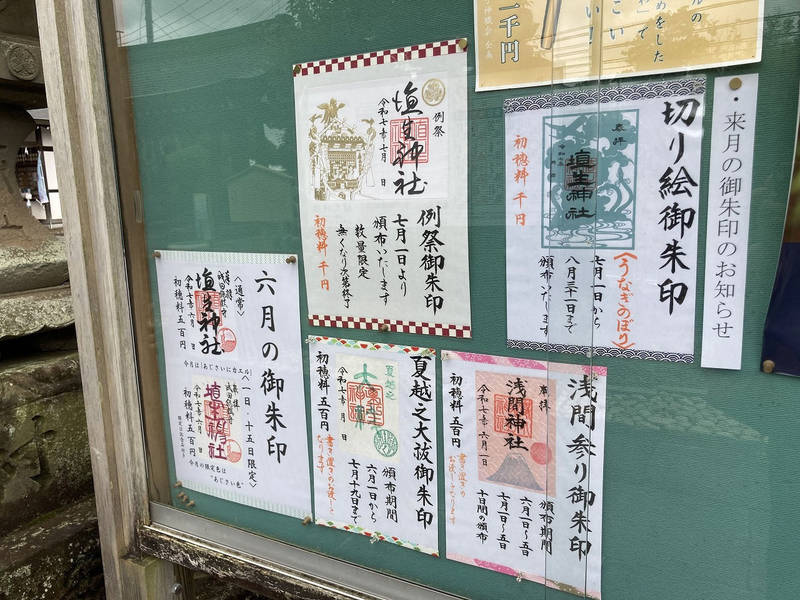 ・来月の御朱印のお知らせ
切り絵御朱印
(うなぎのぼり)
七月一日から
八月三十一日まで
頒布いたします
奉拝
埴生神社
初穂料 千円
例祭
埴生神社
令和七年七月 日
例祭御朱印
七月一日より
頒布いたします
数量限定
無くなり次第終了
初穂料 千円
二千円
六月の御朱印
(通常)
埴生神社
令和七年六月 日
初穂料五百円
今月は「あじさいにカエル」
(一日、十五日限定)
奉拝
埴生神社
令和七年六月 日
初穂料五百円
今月の限定色は
"あじさい色"
夏越之大祓御朱印
頒布期間
六月一日から
七月十九日まで
夏越之
令和七年 月 日
初穂料 五百円
書き置きのお渡しと
なります
浅間参り御朱印
頒布期間
六月一日〜五日
七月一日〜五日
十日間の頒布
奉拝
浅間神社
令和七年六月一日
初穂料 五百円
書き置きの
お渡しとなります